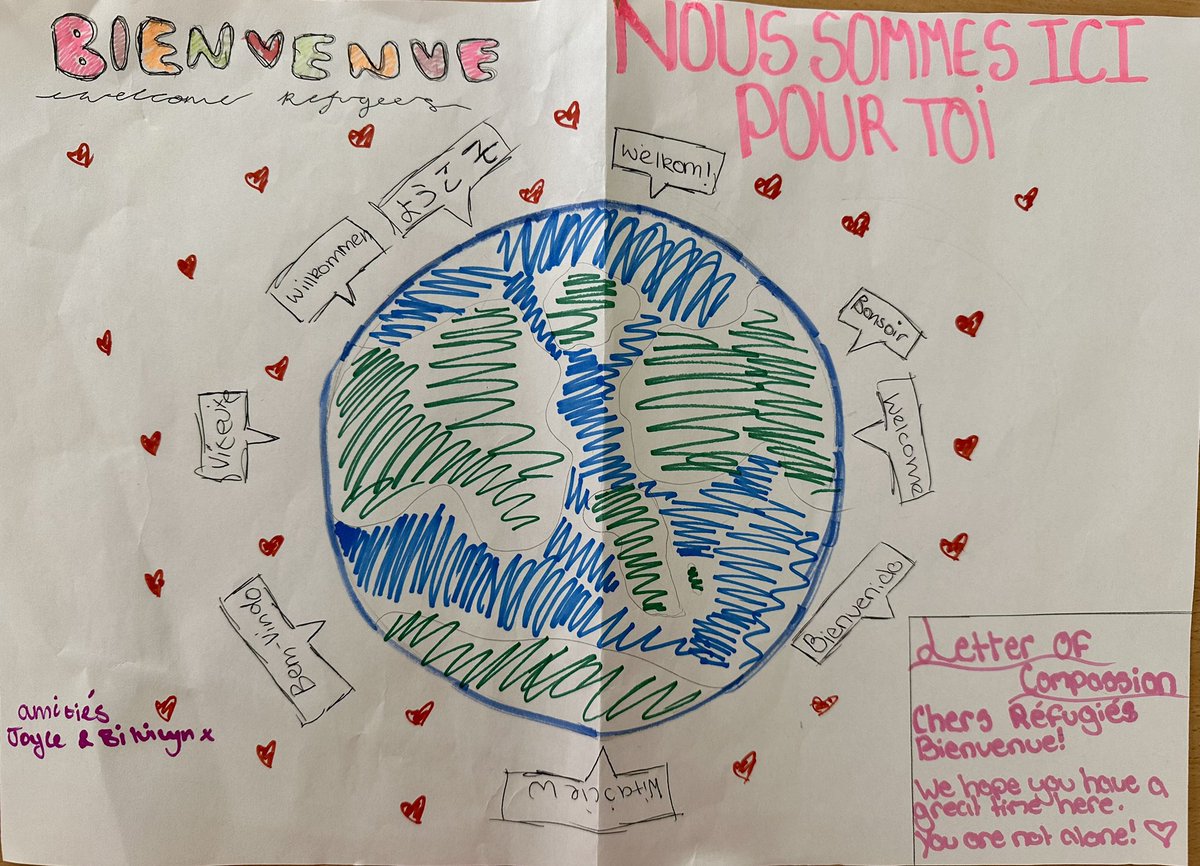 BIENVENUE
welcome Refugees
NOUS SOMMES ICI
POUR TOI
Welkom!
ようこそ
Willkommen
Bonsoir
Welcome
Bem-vindo
Bienvenido
Witajcie w
amitiés
Letter of
Compassion
Chers Réfugiés
Bienvenue!
We hope you have a
great time here.
You are not alone! ♡